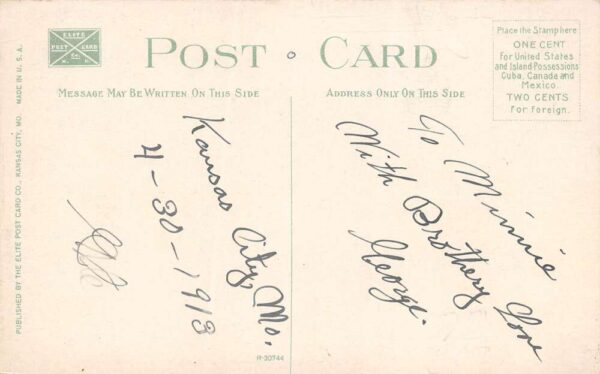 ELITE
POST CARD
Co.
K. C. M.
POST CARD
Place the Stamp here
ONE CENT
for United States
and Island Possessions
Cuba, Canada and
Mexico.
TWO CENTS
For Foreign.
MESSAGE MAY BE WRITTEN ON THIS SIDE
ADDRESS ONLY ON THIS SIDE
PUBLISHED BY THE ELITE POST CARD CO., KANSAS CITY, MO. MADE IN U. S. A.
Kansas City, Mo.
4-30-1913
To Minnie
With Brotherly Love
George.
R-30744